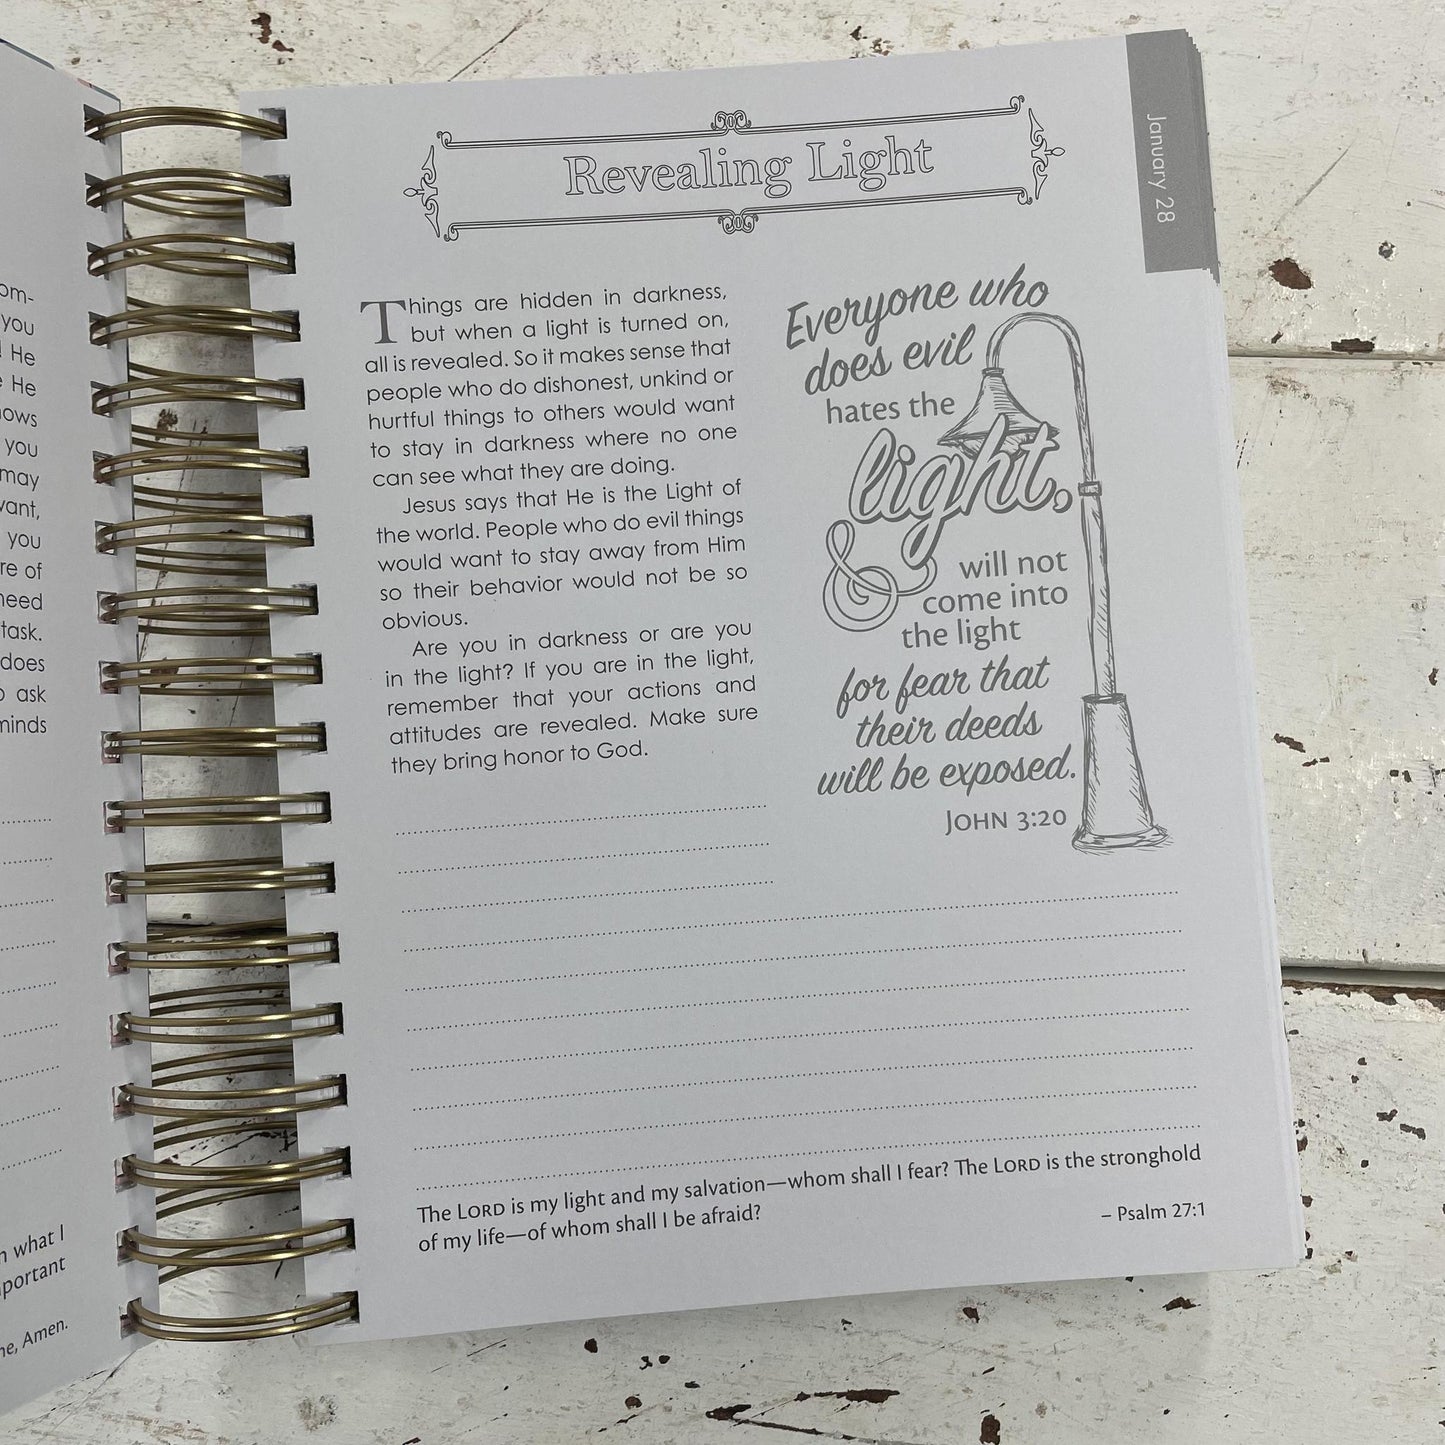 om-
you
He
He
ows
you
may
vant,
you
re of
need
task.
does
ask
minds
what I
portant
Amen.
Revealing Light
January 28
Things are hidden in darkness,
but when a light is turned on,
all is revealed. So it makes sense that
people who do dishonest, unkind or
hurtful things to others would want
to stay in darkness where no one
can see what they are doing.
Jesus says that He is the Light of
the world. People who do evil things
would want to stay away from Him
so their behavior would not be so
obvious.
Are you in darkness or are you
in the light? If you are in the light,
remember that your actions and
attitudes are revealed. Make sure
they bring honor to God.
Everyone who
does evil
hates the
light,
& will not
come into
the light
for fear that
their deeds
will be exposed.
JOHN 3:20
The LORD is my light and my salvation—whom shall I fear? The LORD is the stronghold
of my life—of whom shall I be afraid?
– Psalm 27:1